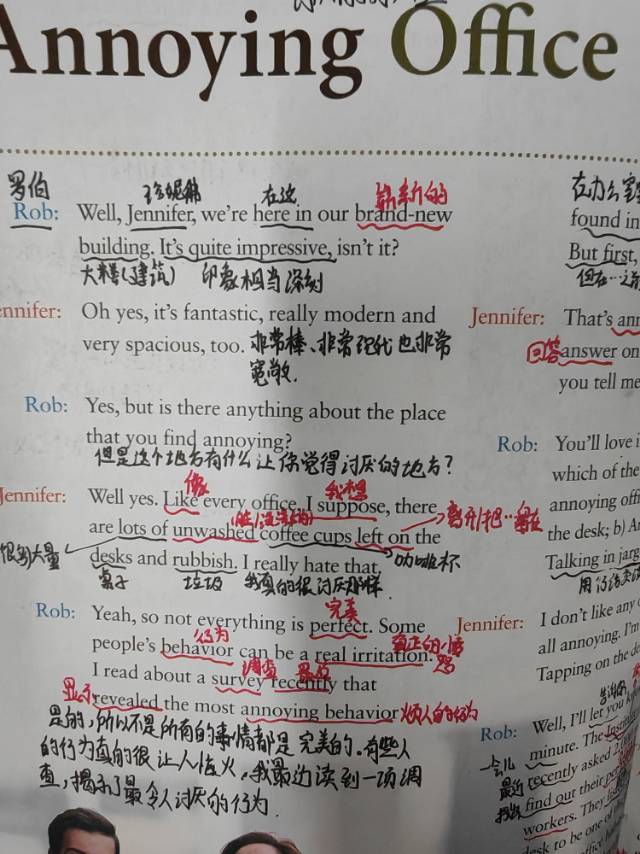 Annoying Office
罗伯
珍妮佛
在这
崭新的
Rob: Well, Jennifer, we're here in our brand-new
building. It's quite impressive, isn't it?
大楼(建筑) 印象相当深刻
Jennifer: Oh yes, it's fantastic, really modern and
very spacious, too. 非常棒、非常现代也非常
宽敞.
Rob: Yes, but is there anything about the place
that you find annoying?
但是这个地方有什么让你觉得讨厌的地方?
像
我想
Jennifer: Well yes. Like every office, I suppose, there
are lots of unwashed coffee cups left on the
离开/把…留在
很多/大量
desks and rubbish. I really hate that.
咖啡杯
桌子 垃圾 我真的很讨厌那样.
完美
Rob: Yeah, so not everything is perfect. Some
行为
people's behavior can be a real irritation.
调查 最近
I read about a survey recently that
显示 revealed the most annoying behavior 烦人的行为
是的,所以不是所有的事情都是完美的.有些人
的行为真的很让人恼火,我最近读到一项调
查,揭示了最令人讨厌的行为.
found in
But first,
但在…之前
Jennifer: That's ann
回答 answer on
you tell me
Rob: You'll love i
which of the
annoying offi
the desk; b) An
Talking in jarg
Jennifer: I don't like any o
all annoying. I'm
Tapping on the de
Rob: Well, I'll let you k
一会儿 minute. The
最近 recently asked 2,
找出 find out their pe
workers. They
desk to be one of